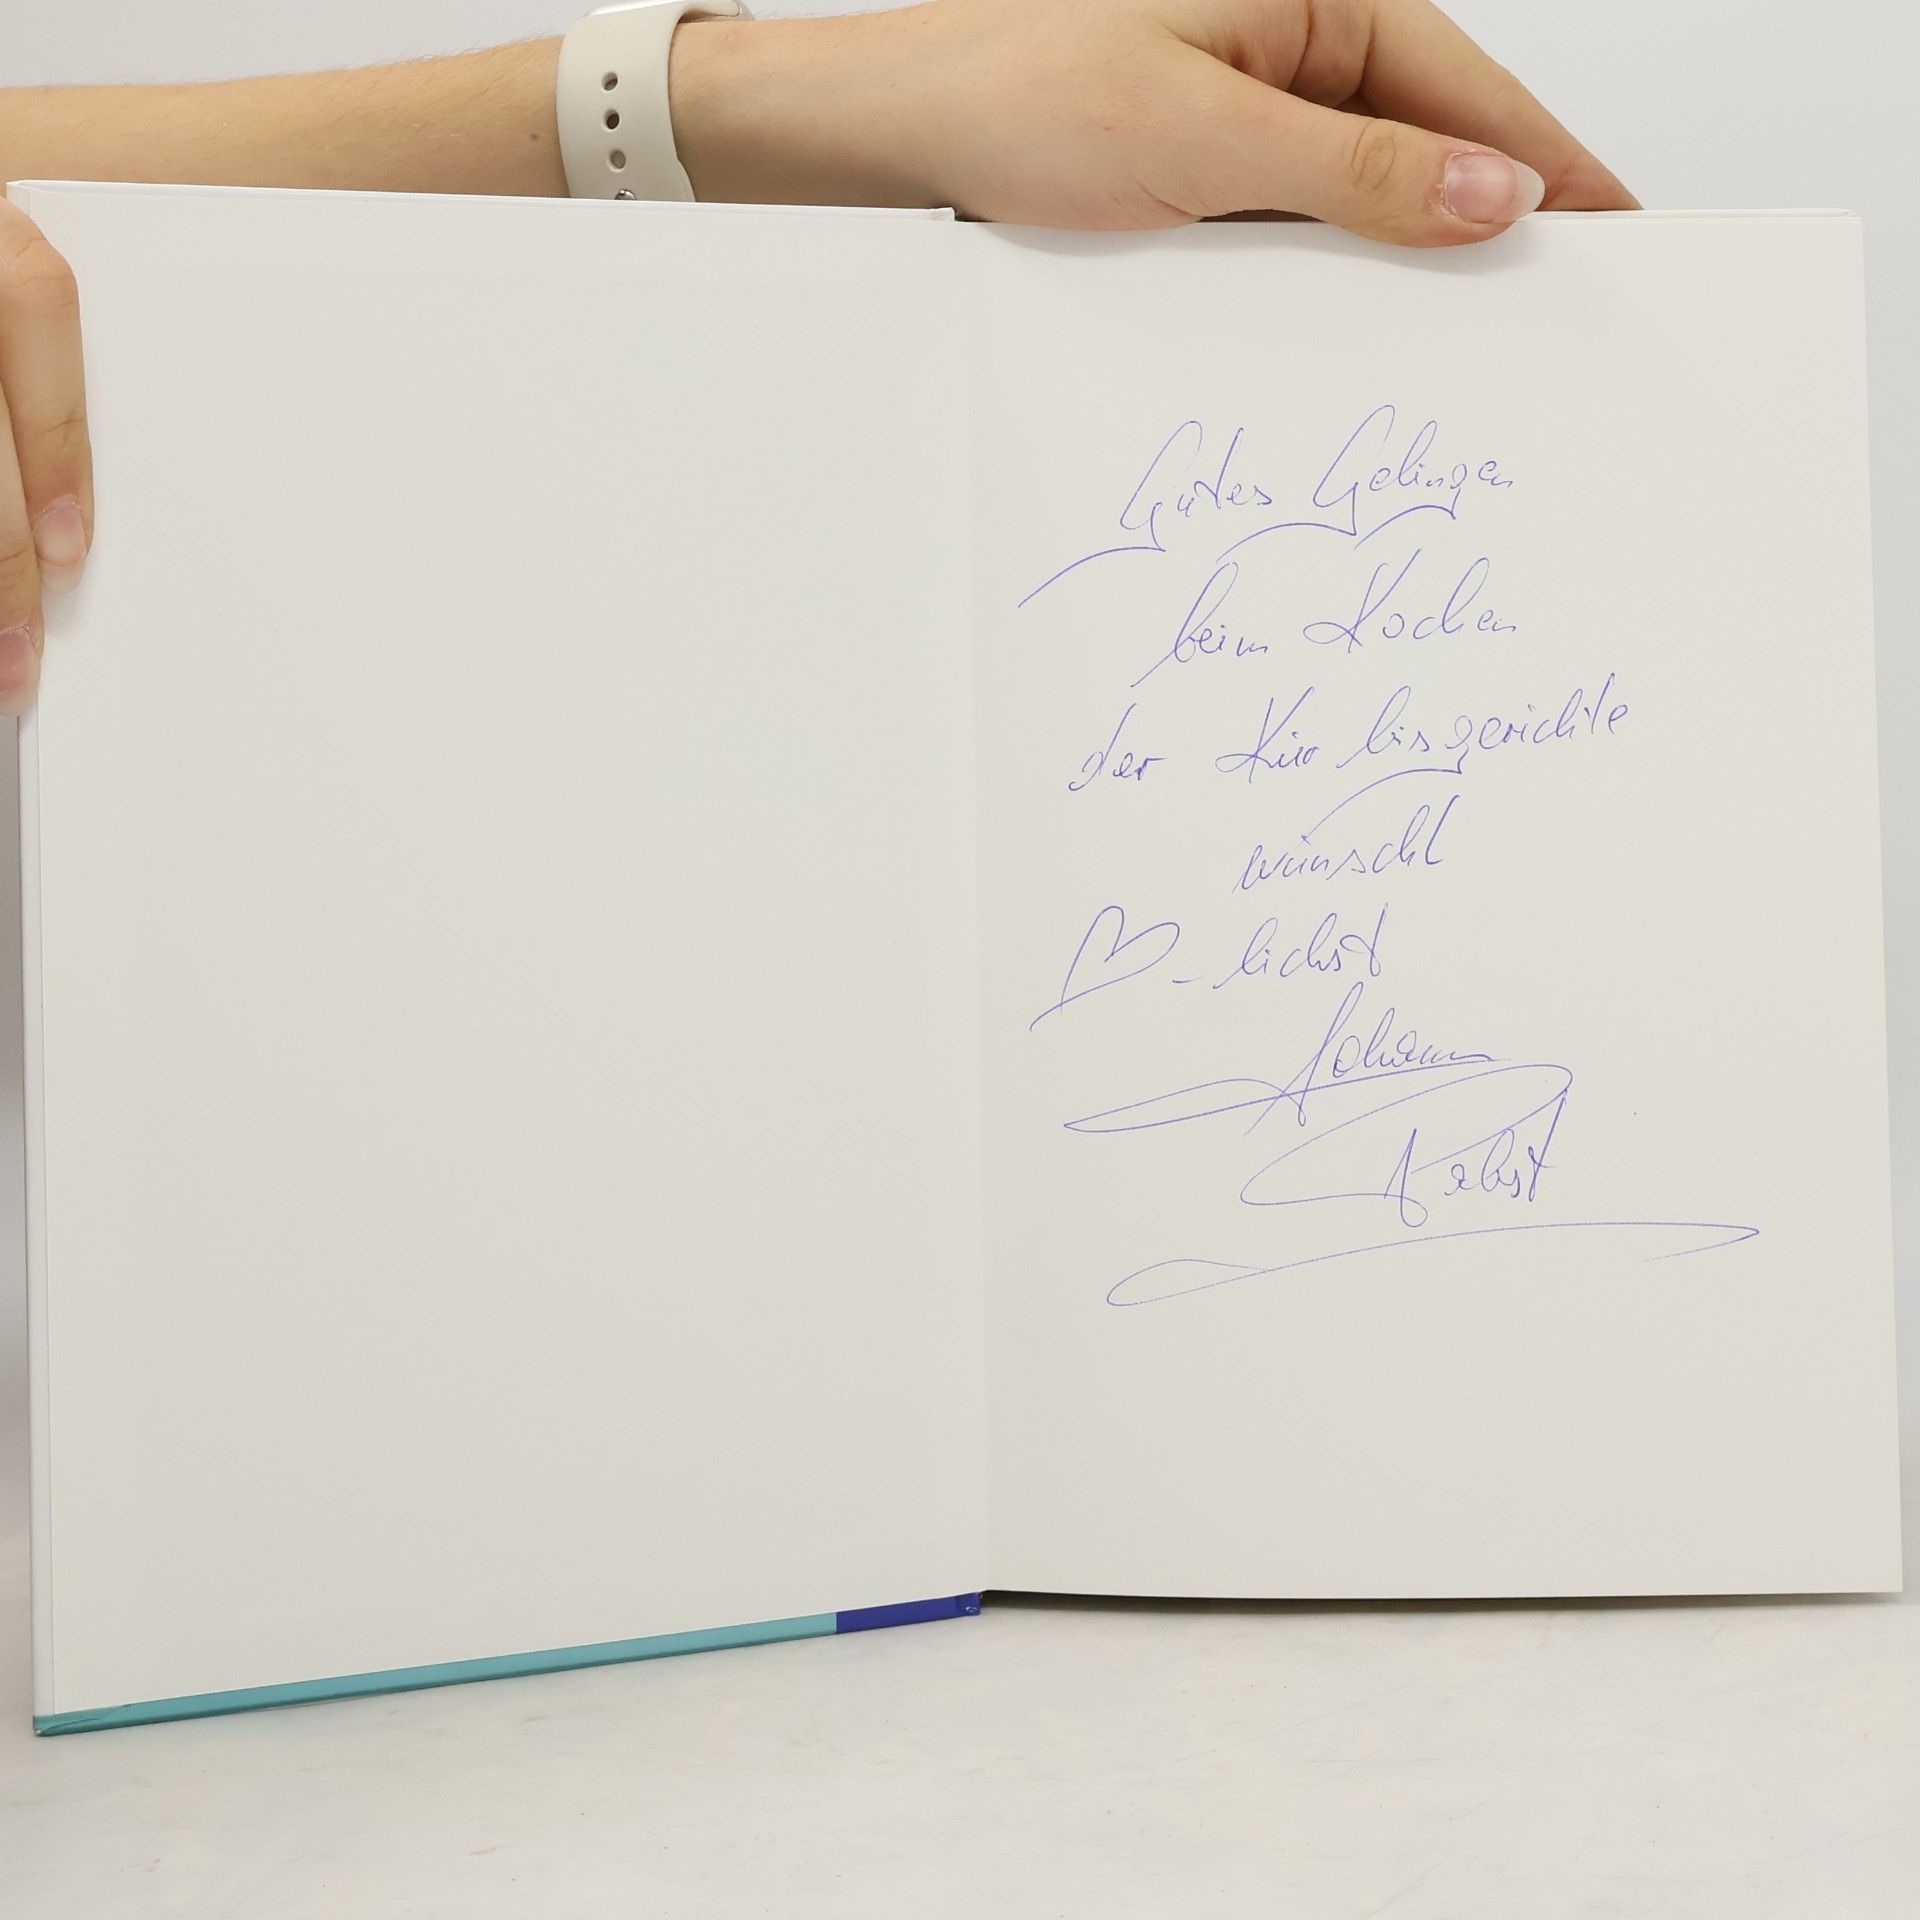 Gutes Gelingen
beim Kochen
der Kürbisgerichte
wünscht
♡-lichst
Johann
Pabst